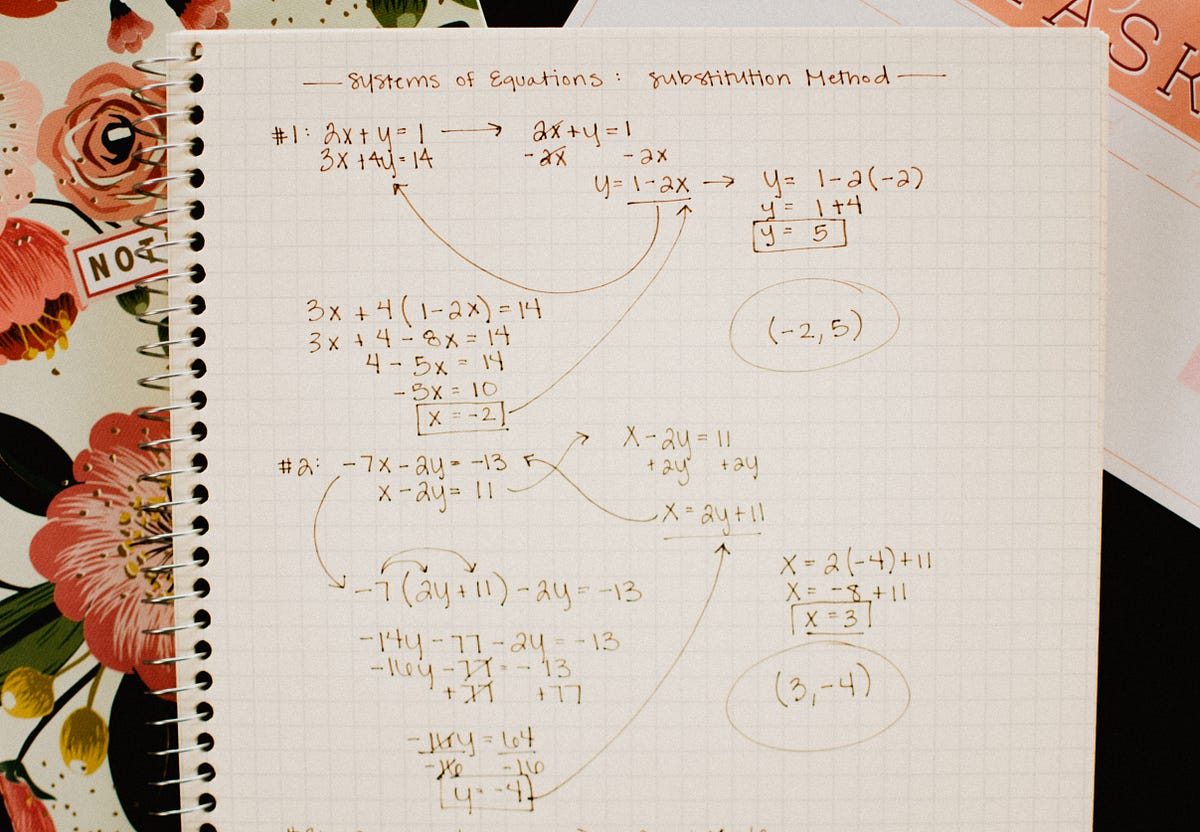 Systems of Equations: Substitution Method
#1: 2x + y = 1 → 2x + y = 1
3x + 4y = 14
-2x -2x
y = 1 - 2x → y = 1 - 2(-2)
y = 1 + 4
y = 5
3x + 4(1 - 2x) = 14
3x + 4 - 8x = 14
4 - 5x = 14
-5x = 10
x = -2
(-2, 5)
#2: -7x - 2y = -13
x - 2y = 11
x - 2y = 11
+2y +2y
x = 2y + 11
-7(2y + 11) - 2y = -13
-14y - 77 - 2y = -13
-16y - 77 = -13
+77 +77
-16y = 64
-16 -16
y = -4
x = 2(-4) + 11
x = -8 + 11
x = 3
(3, -4)
NOT
TASK